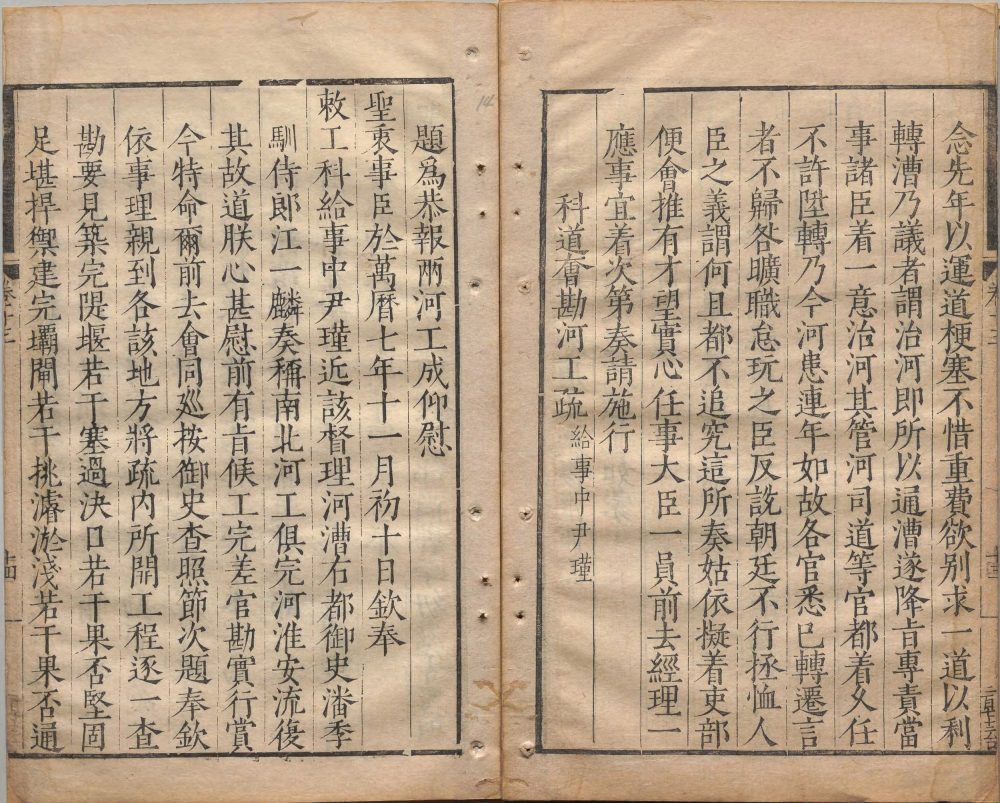 念先年以運道梗塞不惜重費欲别求一道以利
轉漕乃議者謂治河即所以通漕遂降㫖專責當
事諸臣着一意治河其管河司道等官都着乆任
不許陞轉乃今河患連年如故各官悉已轉遷言
者不歸咎曠職怠玩之臣反説朝廷不行拯恤人
臣之義謂何且都不追究這所奏姑依擬着吏部
便會推有才望實心任事大臣一員前去經理一
應事宜着次第奏請施行
科道會勘河工疏 給事中尹瑾
題爲恭報兩河工成仰慰
聖衷事臣於萬曆七年十一月初十日欽奉
敕工科給事中尹瑾近該督理河漕右都御史潘季
馴侍郎江一麟奏稱南北河工俱完河淮安流復
其故道朕心甚慰前有㫖候工完差官勘實行賞
今特命爾前去會同廵按御史查照節次題奉欽
依事理親到各該地方將疏内所開工程逐一查
勘要見築完隄堰若干塞過決口若干果否堅固
足堪捍禦建完壩閘若干挑濬淤淺若干果否通
卷十三
十四